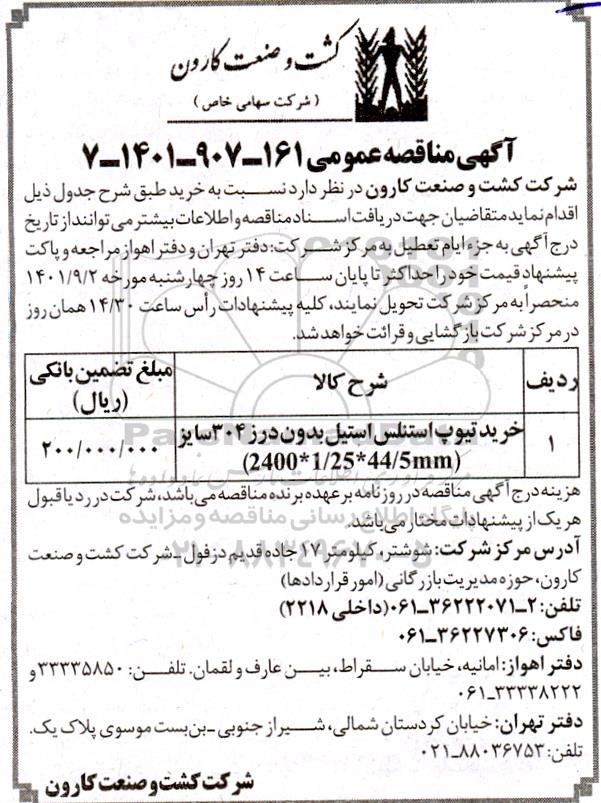 کشت و صنعت کارون
(شرکت سهامی خاص)
آگهی مناقصه عمومی ۱۶۱-۹۰۷-۱۴۰۱-۷
شرکت کشت و صنعت کارون در نظر دارد نسبت به خرید طبق شرح جدول ذیل
اقدام نماید متقاضیان جهت دریافت اسناد مناقصه و اطلاعات بیشتر می توانند از تاریخ
درج آگهی به جزء ایام تعطیل به مرکز شرکت: دفتر تهران و دفتر اهواز مراجعه و پاکت
پیشنهاد قیمت خود را حداکثر تا پایان ساعت ۱۴ روز چهارشنبه مورخه ۱۴۰۱/۹/۲
منحصراً به مرکز شرکت تحویل نمایند، کلیه پیشنهادات رأس ساعت ۱۴/۳۰ همان روز
در مرکز شرکت بازگشایی و قرائت خواهد شد.
ردیف شرح کالا مبلغ تضمین بانکی
(ریال)
۱ خرید تیوپ استنلس استیل بدون درز ۳۰۴ سایز ۲۰۰/۰۰۰/۰۰۰
(2400*1/25*44/5mm)
هزینه درج آگهی مناقصه در روزنامه بر عهده برنده مناقصه می باشد، شرکت در رد یا قبول
هر یک از پیشنهادات مختار می باشد.
پایگاه اطلاع رسانی مناقصه و مزایده
آدرس مرکز شرکت: شوشتر، کیلومتر ۱۷ جاده قدیم دزفول، شرکت کشت و صنعت
کارون، حوزه مدیریت بازرگانی (امور قراردادها)
تلفن: ۲-۳۶۲۲۲۰۷۱-۰۶۱ (داخلی ۲۲۱۸)
فاکس: ۳۶۲۲۷۳۰۶-۰۶۱
دفتر اهواز: امانیه، خیابان سقراط، بین عارف و لقمان. تلفن: ۳۳۳۳۵۸۵۰ و
۳۳۳۳۸۲۲۲-۰۶۱
دفتر تهران: خیابان کردستان شمالی، شیراز جنوبی -بن بست موسوی پلاک یک.
تلفن: ۸۸۰۳۶۷۵۳-۰۲۱
شرکت کشت و صنعت کارون